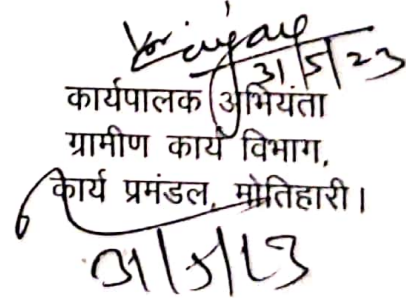 31/5/23
कार्यपालक अभियंता
ग्रामीण कार्य विभाग,
कार्य प्रमंडल, मोतिहारी।